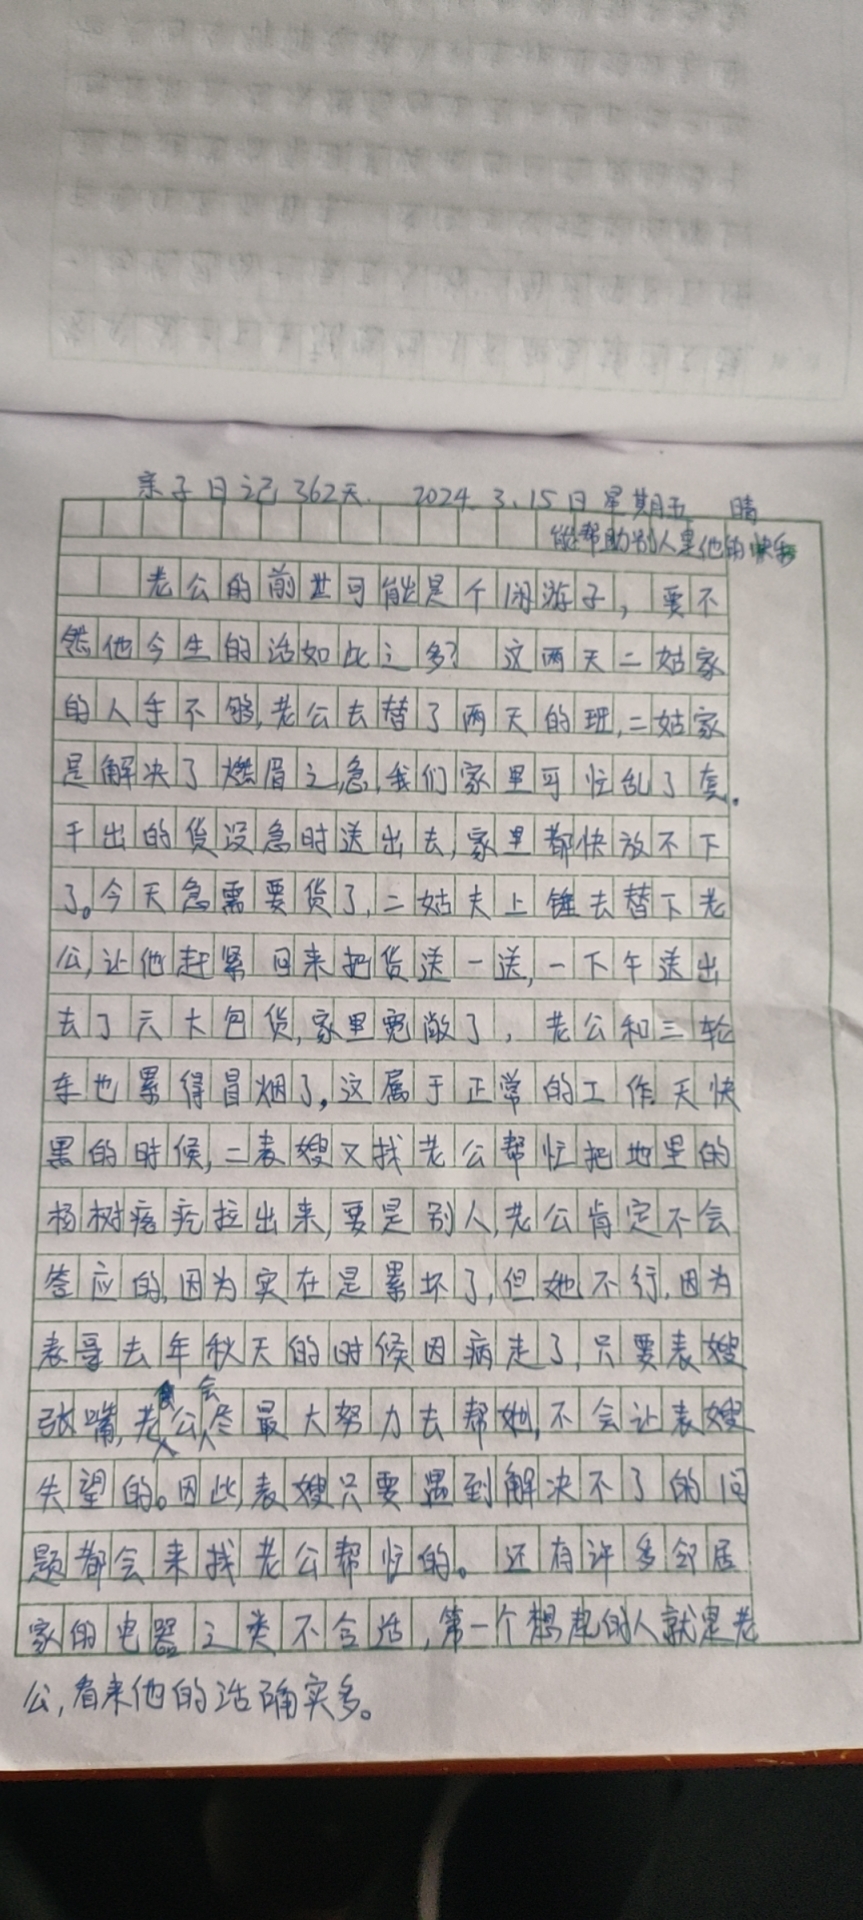 亲子日记362天. 2024.3.15日 星期五 晴
能帮助别人是他的快乐
老公的前世可能是个闲游子，要不
然他今生的活如此之多？这两天二姑家
的人手不够,老公去替了两天的班,二姑家
是解决了燃眉之急,我们家里可忙乱了套.
干出的货没急时送出去,家里都快放不下
了。今天急需要货了,二姑夫上锤去替下老
公,让他赶紧回来把货送一送,一下午送出
去了六大包货,家里宽敞了，老公和三轮
车也累得冒烟了,这属于正常的工作.天快
黑的时候,二表嫂又找老公帮忙把地里的
杨树疙疙拉出来,要是别人,老公肯定不会
答应的,因为实在是累坏了,但她不行,因为
表哥去年秋天的时候因病走了,只要表嫂
张嘴,老公会尽最大努力去帮她,不会让表嫂
失望的。因此,表嫂只要遇到解决不了的问
题都会来找老公帮忙的。还有许多邻居
家的电器之类不合适,第一个想起的人就是老
公,看来他的活确实多。